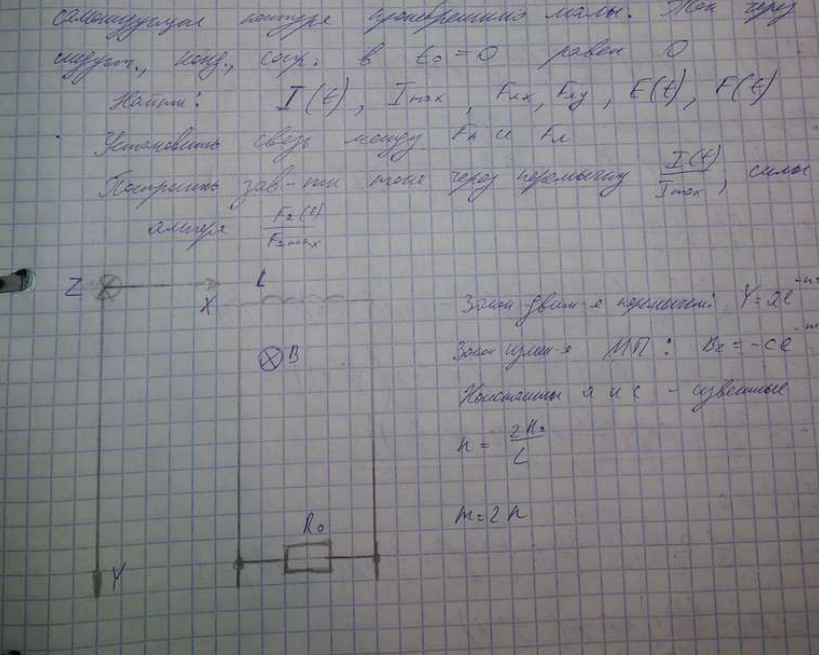 самоиндукция контура пренебрежимо малы. Ток через
индукт., конд., сопр. в t₀=0 равен 0
Найти: I(t), Imax, Fлx, Fлy, E(t), F(t)
Установить связь между FA и Fл
Построить зав-ти тока через перемычку I(t)/Imax, силы
ампера F₂(t)/F₂max
Z X L
B
R₀
Y
Закон движ-я перемычки: Y=ae^-nt
Закон измен-я МП: Bz=-ce^-m
Константы a и c - известные
n = 2R₀/L
m=2n